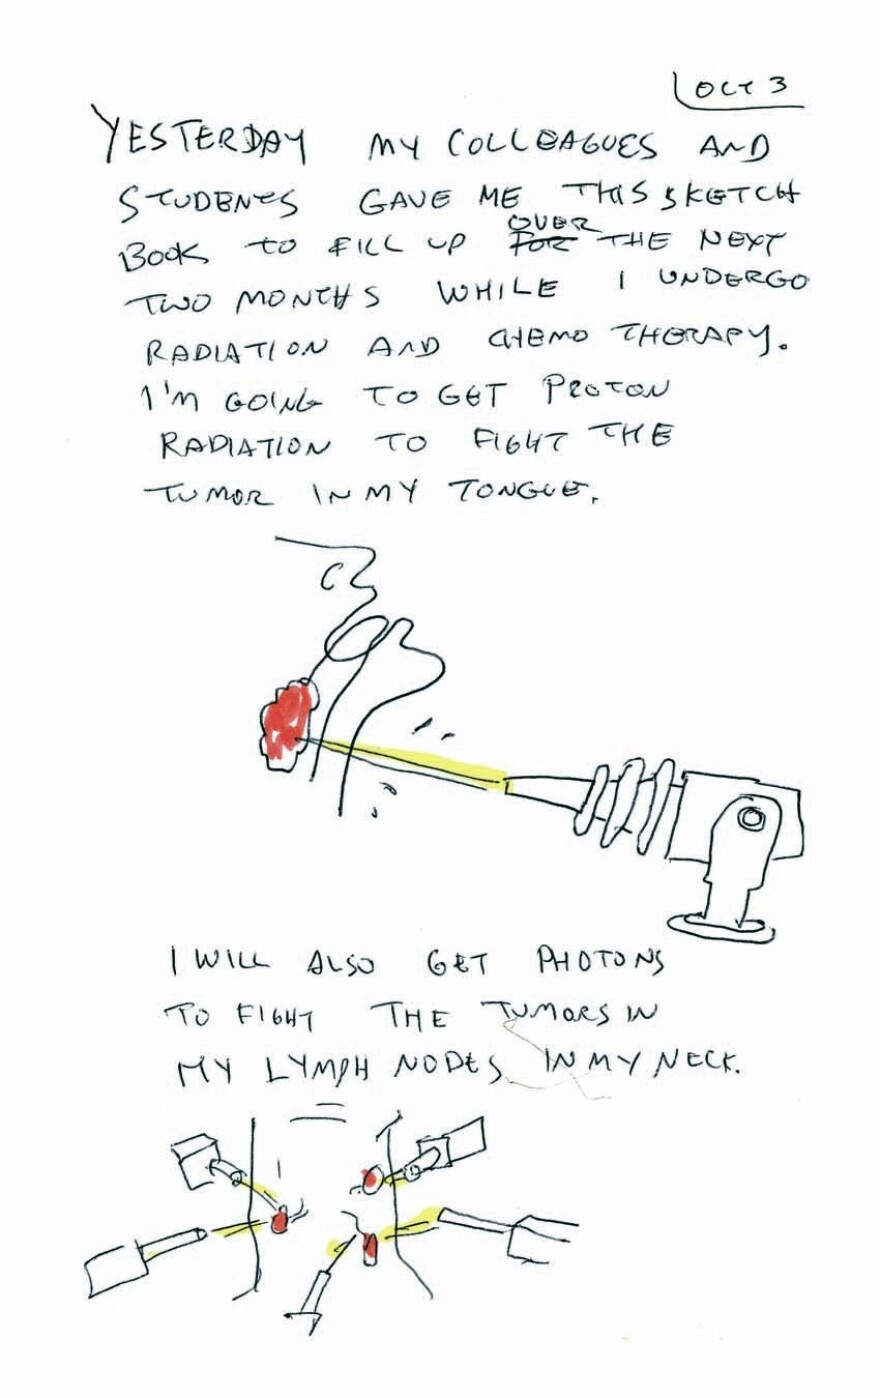 OCT 3
YESTERDAY MY COLLEAGUES AND
STUDENTS GAVE ME THIS SKETCH
BOOK TO FILL UP FOR OVER THE NEXT
TWO MONTHS WHILE I UNDERGO
RADIATION AND CHEMO THERAPY.
I'M GOING TO GET PROTON
RADIATION TO FIGHT THE
TUMOR IN MY TONGUE.
I WILL ALSO GET PHOTONS
TO FIGHT THE TUMORS IN
MY LYMPH NODES IN MY NECK.